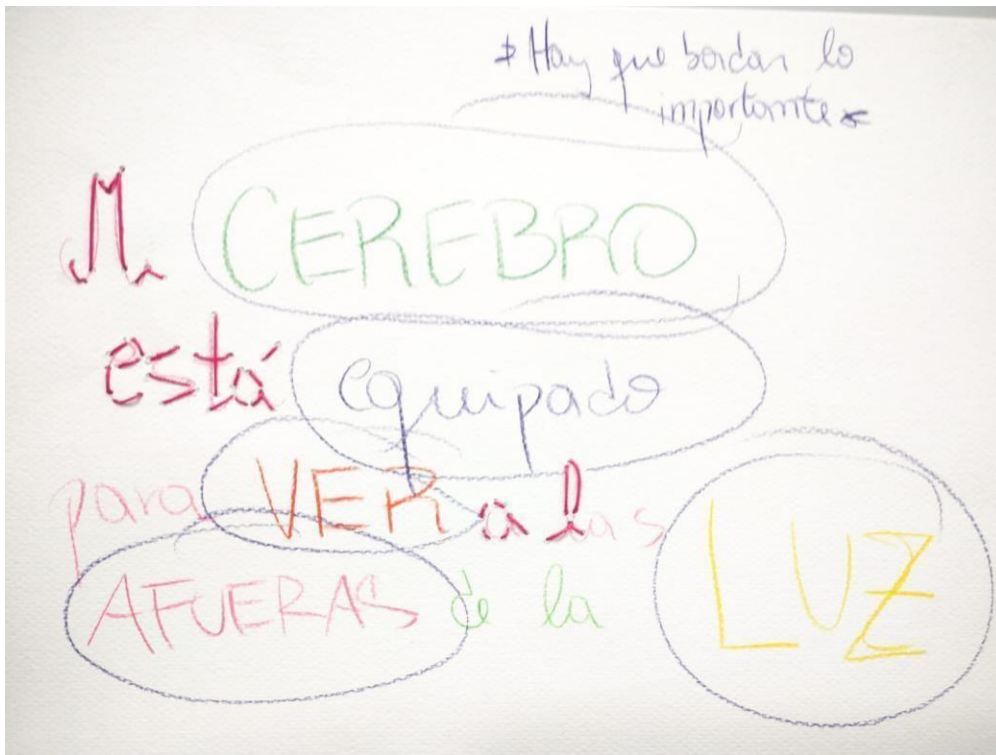 * Hay que bordar lo
importante *
Mi CEREBRO
está equipado
para VER a las
AFUERAS de la LUZ